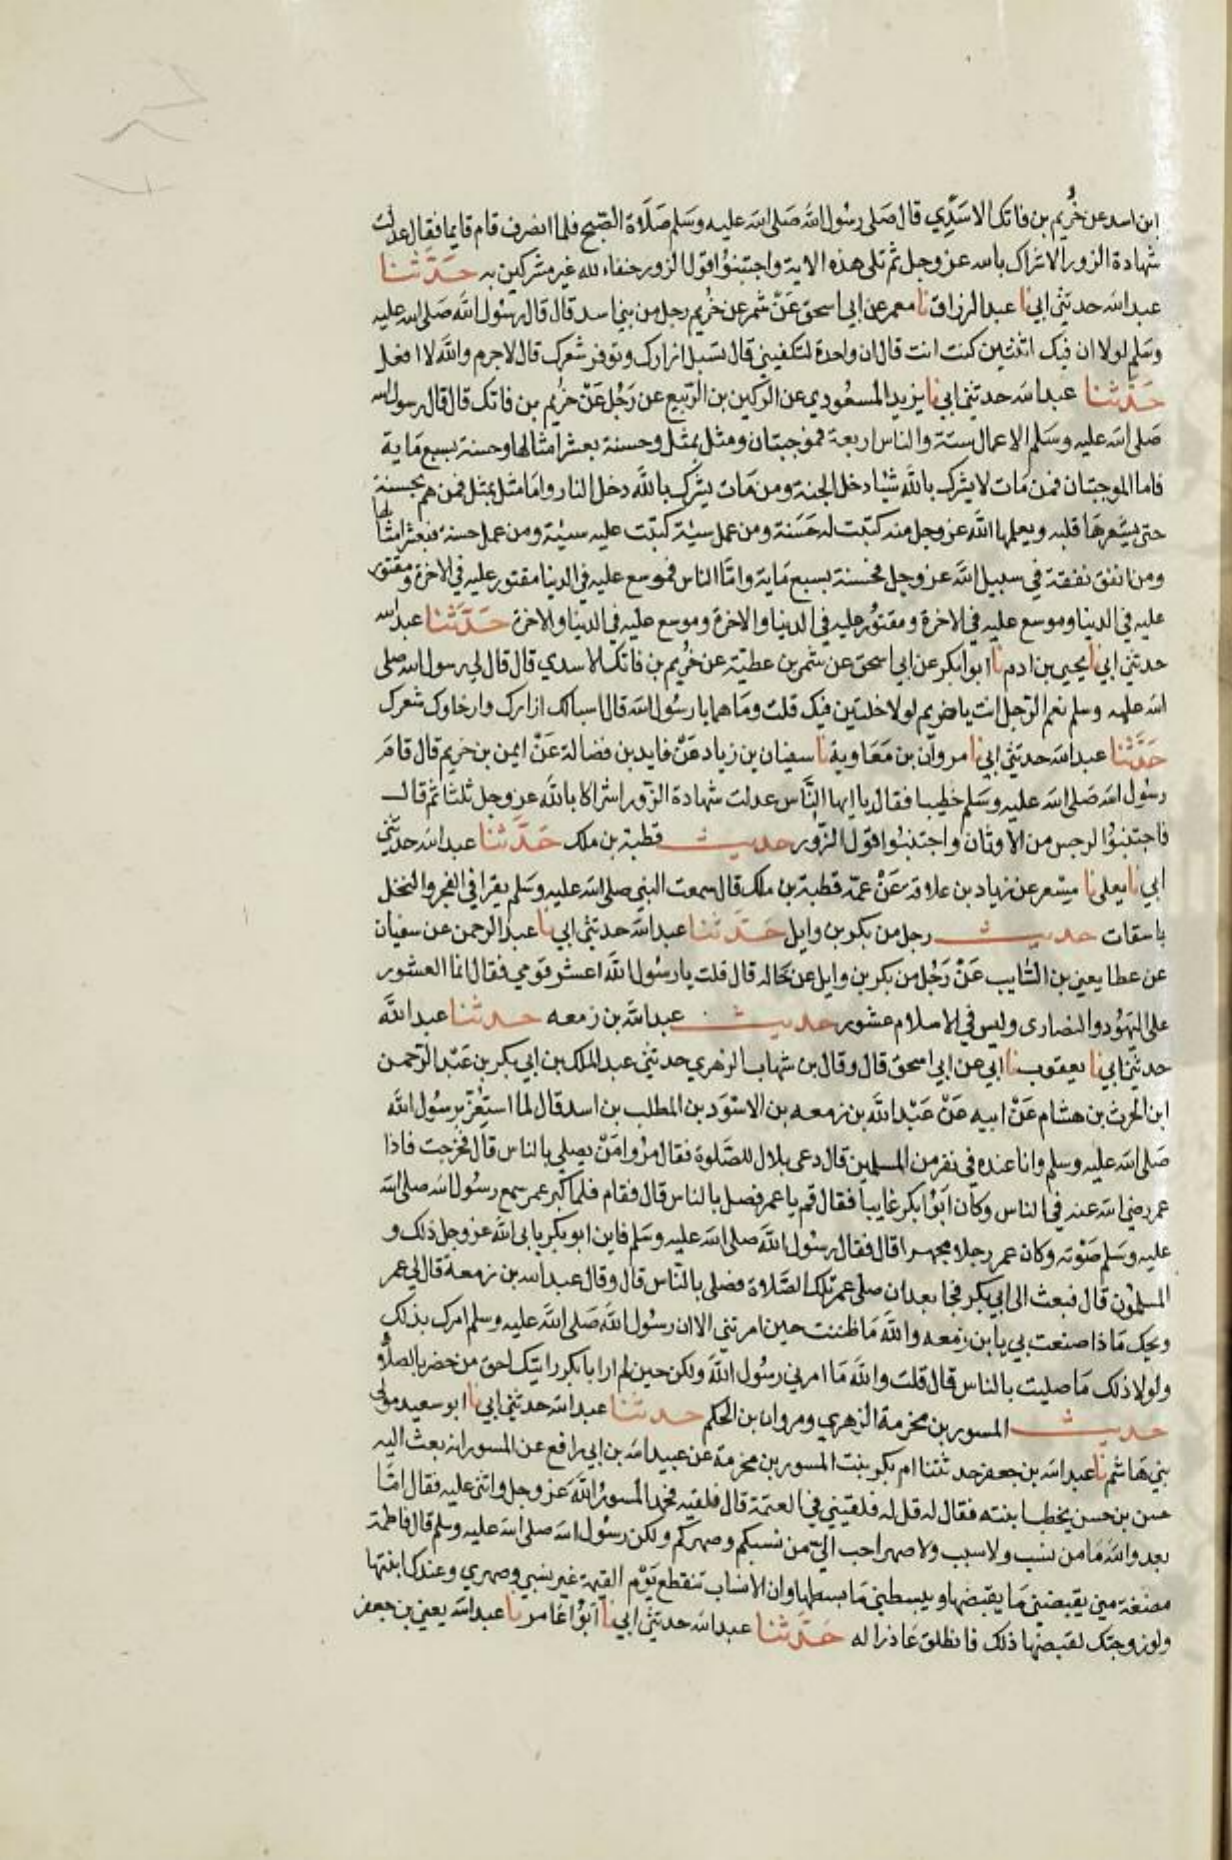 ابن اسد عن خُريم بن فاتك الاسَدِي قال صَلى رسُول الله صَلى الله عليه وسَلم صَلَاة الصّبح فلما انصرف قام قايما فقال عدلت
شهادة الزور الاشراك بالله عز وجل ثم تلى هذه الاية واجتنبوُا قول الزور حنفاء لله غير مشركين به حَدَّثنا
عبد الله حدثني ابي نا عبد الرزاق نا معمر عن ابي اسحق عَنْ شمر عن خُريم رجل من بني اسد قال قال رسُول الله صَلى الله عليه
وسَلم لولا ان فيك اثنتين كنت انت قال ان واحدة لتكفيني قال تسبل ازارك وتوفر شعرك قال لاجرم والله لا افعل
حَدَّثنا عبد الله حدثني ابي نا يزيد المسعُودي عن الركين بن الرّبيع عن رَجُل عَنْ خُريم بن فاتك قال قال رسول الله
صَلى الله عليه وسَلم الاعمال ستة والناس اربعة فموجبتان ومثل بمثل وحسنة بعشر امثالها وحسنة بسبع مَاية
فاما الموجبتان فمن مَات لا يشرك بالله شيْا دخل الجنة ومن مَات يشرك بالله دخل النار وامَا مثل بمثل فمن هم بحسنة
حتى يشعرهَا قلبه ويعلمها الله عز وجل منه كتبت له حَسَنة ومن عمل سيئة كتبت عليه سيئة ومن عمل حسنة فبعشر امثالها
ومن انفق نفقة في سبيل الله عز وجل فحسنة بسبع مَاية وامّا الناس فموسع عليه في الدنيا مقتور عليه في الاخرة ومقتور
عليه في الدنيا وموسع عليه في الاخرة ومقتوُر عليه في الدنيا والاخرة وموسع عليه في الدنيا والاخرة حَدَّثنا عبد الله
حدثني ابي نا يحيى بن ادم نا ابو ابكر عن ابي اسحق عن شمر بن عطيّة عن خُريم بن فاتك الاسدي قال قال لي رسول الله صلى
الله عليه وسلم نعم الرّجل انت ياخريم لولا خلتين فيك قلت ومَا هما يا رسُول الله قال اسبالك ازارك وارخاوك شعرك
حَدَّثنا عبد الله حدثني ابي نا مروان بن مَعَاوية نا سفيان بن زياد عَنْ فايد بن فضالة عَنْ ايمن بن خريم قال قامَ
رسُول الله صَلى الله عليه وسَلم خطيبا فقال يا ايها النَّاس عدلت شهادة الزّور اشراكا بالله عز وجل ثلثا ثم قال
فاجتنبوُا الرجس من الاوثان واجتنبُوا قول الزّور حديث قطبة بن ملك حَدَّثنا عبد الله حدثني
ابي نا يعلى نا مسْعر عن زياد بن علاقة عَنْ عمّه قطبة بن ملك قال سمعت النبي صلى الله عليه وسَلم يقرا في الفجر والنخل
باسقات حديث رجل من بكر بن وايل حَدَّثنا عبد الله حدثني ابي نا عبد الرحمن عن سفيان
عن عطا يعني بن السّايب عَنْ رَجُل من بكر بن وايل عن خاله قال قلت يا رسُول الله اعشر قومي فقال انما العشور
على اليَهوُد والنصارى وليس في الاسلام عشور حديث عبد الله بن زمعه حدثنا عبد الله
حدثني ابي نا يعقوب نا ابي عن ابي اسحق قال وقال بن شهاب الزهري حدثني عبد الملك بن ابي بكر بن عَبْد الرّحمن
ابن الحرث بن هشام عَنْ ابيه عَنْ عَبْد الله بن زمعه بن الاسْوَد بن المطلب بن اسد قال لما استعُزّ برسُول الله
صَلى الله عليه وسلم وانا عنده في نفر من المسلمين قال دعى بلال للصَّلوة فقال مرُوا مَنْ يصلي بالناس قال فخرجت فاذا
عمر رضي الله عنه في الناس وكان ابوُا بكر غايباً فقال قم يا عمر فصل بالناس قال فقام فلما كبر عمر سمع رسُول الله صلى الله
عليه وسَلم صَوْته وكان عمر رجلا مجهرا قال فقال رسُول الله صلى الله عليه وسَلم فاين ابو بكر يابى الله عز وجل ذلك و
المسلموُن قال فبعث الى ابي بكر فجا بعد ان صلى عمر تلك الصَّلاة فصلى بالنّاس قال وقال عبد الله بن زمعة قال لي عمر
ويحك مَاذا صنعت بي يا بن زمعه والله مَا ظننت حين امرتني الا ان رسُول الله صَلى الله عليه وسلم امرك بذلك
ولولا ذلك مَا صليت بالناس قال قلت والله مَا امرني رسُول الله ولكن حين لم ارا بابكر رايتك احق من حضر بالصلاة
حديث المسور بن مخرمة الزهري ومروان بن الحكم حدثنا عبد الله حدثني ابي نا ابو سعيد مولى
بني هَاشم نا عبد الله بن جعفر حدثتنا ام بكر بنت المسور بن مخرمة عن عبيد الله بن ابي رافع عن المسور انه بعث اليه
حسن بن حسن يخطب ابنته فقال له قل له فليقيني في العتمة قال فلقيه فحمد المسورُ الله عز وجل واثنى عليه فقال امّا
بعد والله مَا من نسب ولا سبب ولا صهر احب اليّ من نسبكم وصهركم ولكن رسُول الله صلى الله عليه وسلم قال فاطمة
مضغة مني يقبضني مَا يقبضها ويبسطني مَا يبسطها وان الانساب تنقطع يَوْم القيمة غير نسبي وصهري وعندك ابنتها
ولو زوجتك لقبضها ذلك فانطلق عَاذرا له حَدَّثنا عبد الله حدثني ابي نا ابوُا عَامر نا عبد الله يعني بن جعفر